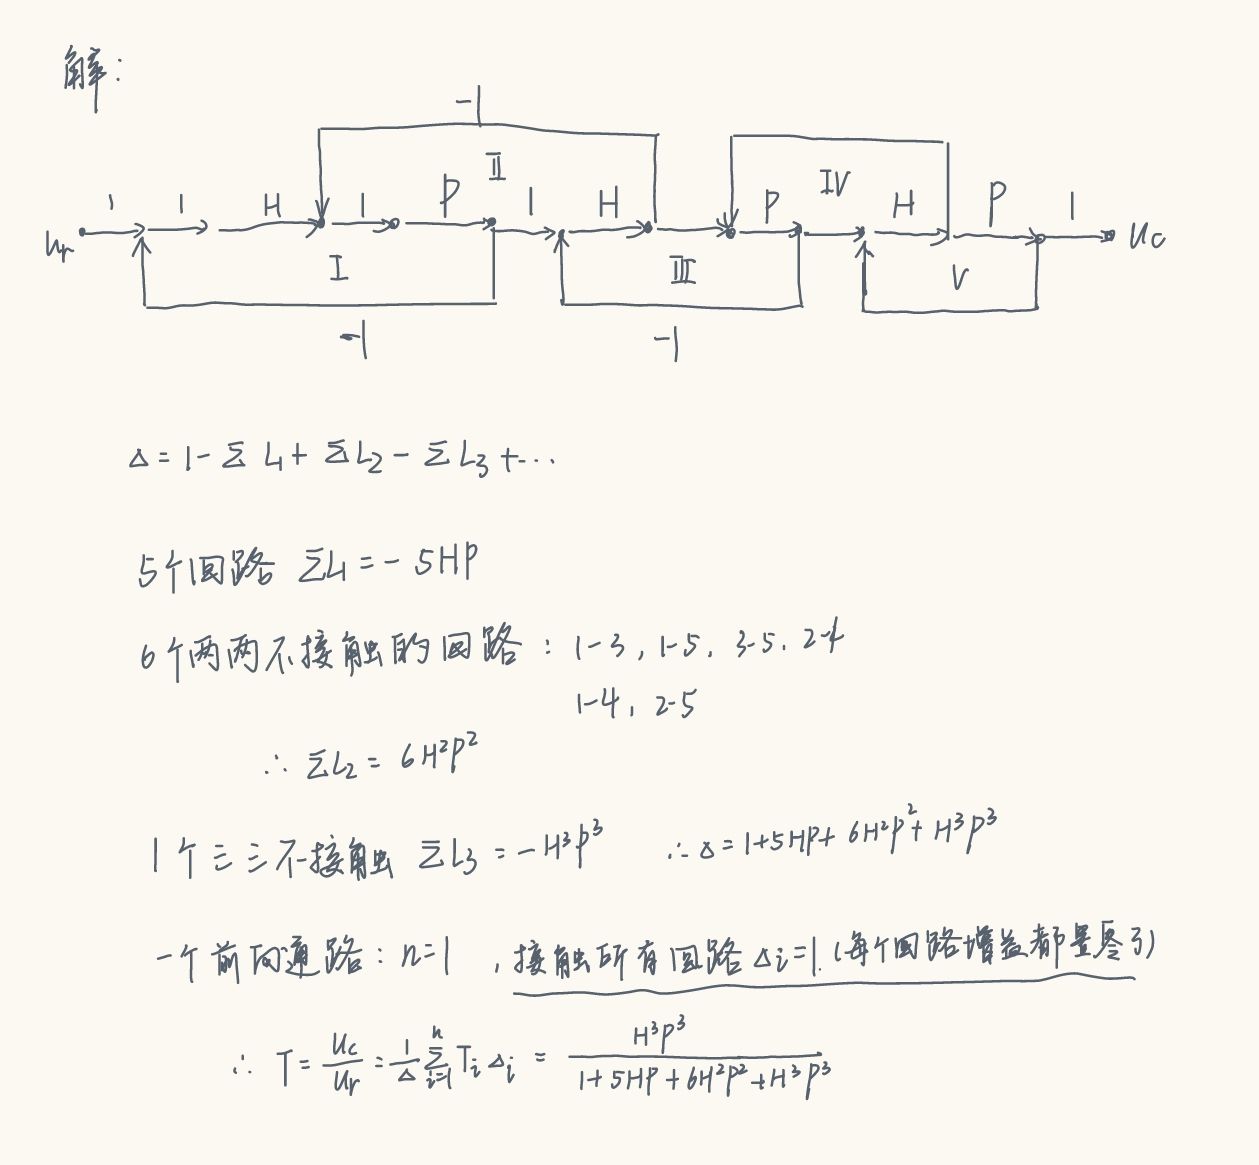 解:
-1
II IV
1 1 H 1 P 1 H P H P 1
ur uc
I III V
-1 -1
Δ = 1 - Σ L1 + Σ L2 - Σ L3 + ...
5个回路 ΣL1 = - 5HP
6个两两不接触的回路: 1-3, 1-5, 3-5, 2-4
1-4, 2-5
∴ ΣL2 = 6H²P²
1个三三不接触 ΣL3 = - H³P³ ∴ Δ = 1+5HP+ 6H²P²+ H³P³
一个前向通路: n=1 , 接触所有回路 Δi=1. (每个回路增益都是零了)
∴ T = uc/ur = 1/Δ Σ(i=1, n) Ti Δi = H³P³/(1+5HP+6H²P²+H³P³)